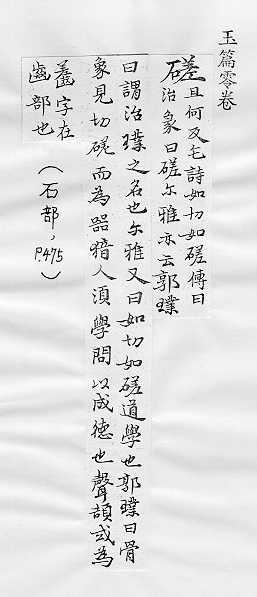 玉篇零卷
磋 且何反毛詩如切如磋傳曰
治象曰磋尒雅亦云郭璞
曰謂治璞之名也尒雅又曰如切如磋道學也郭璞曰骨
象見切磋而為器猶人湏學問以成德也聲頡或為
𪘓字在
齒部也
(石部,P.475)